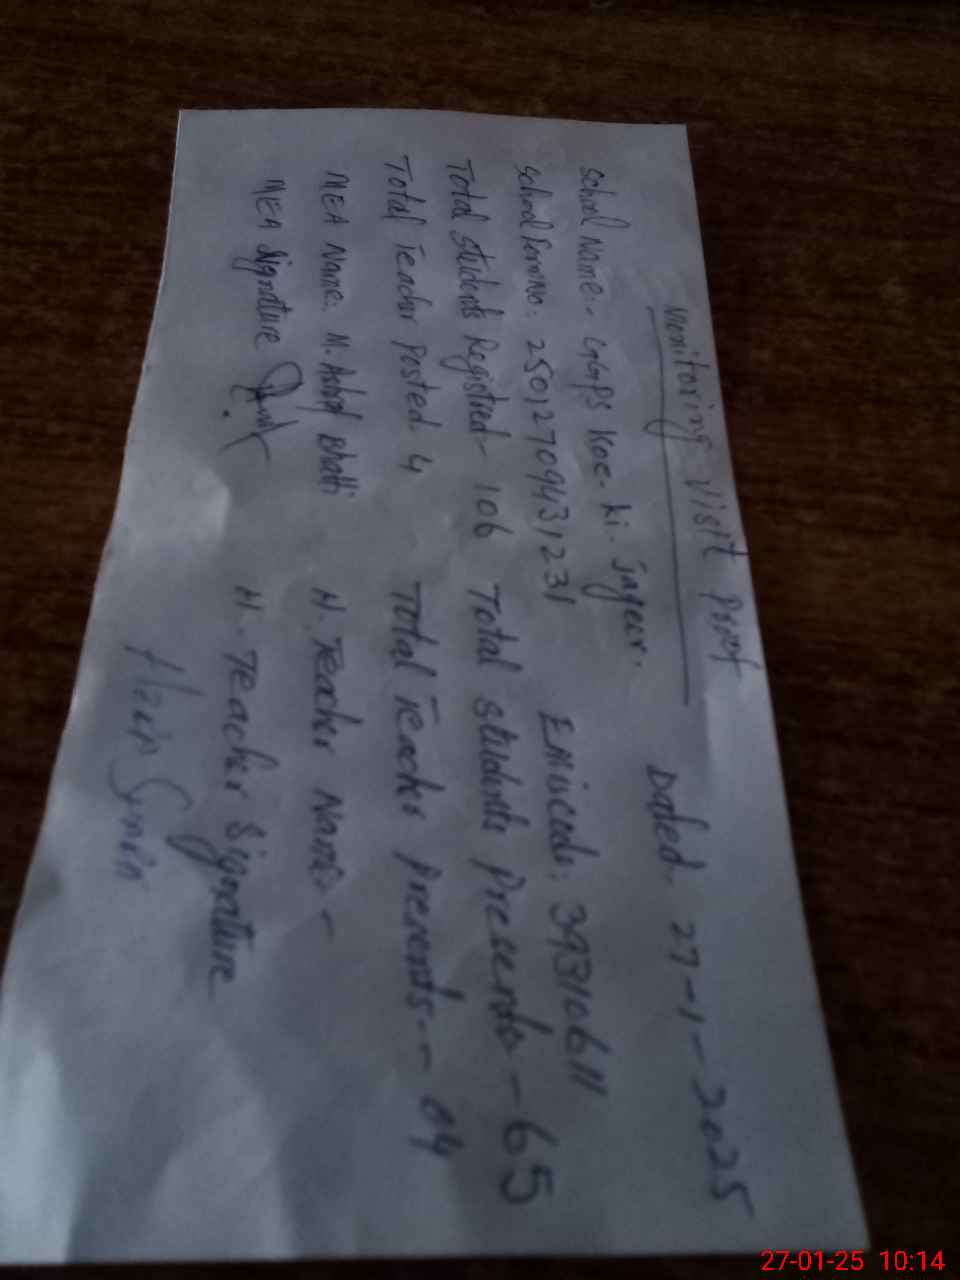 Monitoring Visit Proof
Dated. 27-1-2025
School Name:- GGPS Koe- ki- jageer.
School Form No: 2501270943,231 Emiscode: 39310611
Total Students Registred- 106 Total students Presents - 65
Total Teacher Posted. 4 Total Teacher Presents -- 04
MEA Name: M. Ashraf Bhatti H. Teacher Name:-
MEA Signature H. Teacher Signature
27-01-25 10:14